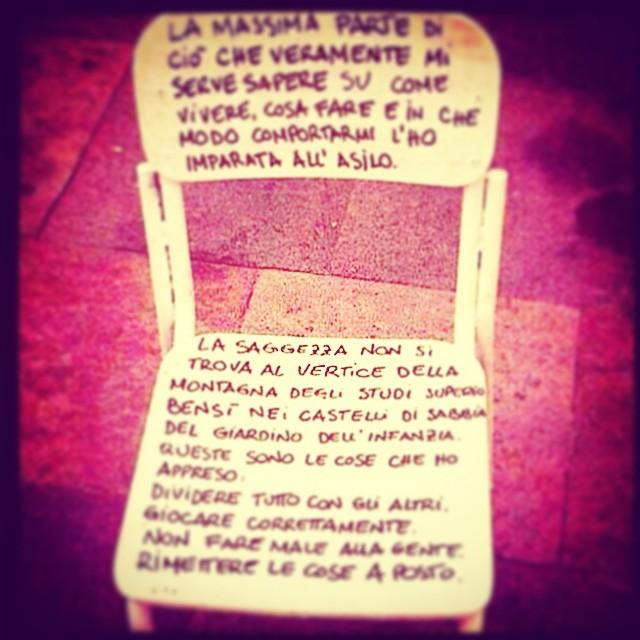 LA MASSIMA PARTE DI
CIÒ CHE VERAMENTE MI
SERVE SAPERE SU COME
VIVERE, COSA FARE E IN CHE
MODO COMPORTARMI L'HO
IMPARATA ALL' ASILO.
LA SAGGEZZA NON SI
TROVA AL VERTICE DELLA
MONTAGNA DEGLI STUDI SUPERIO
BENSÌ NEI CASTELLI DI SABBIA
DEL GIARDINO DELL'INFANZIA.
QUESTE SONO LE COSE CHE HO
APPRESO.
DIVIDERE TUTTO CON GLI ALTRI.
GIOCARE CORRETTAMENTE.
NON FARE MALE ALLA GENTE.
RIMETTERE LE COSE A POSTO.